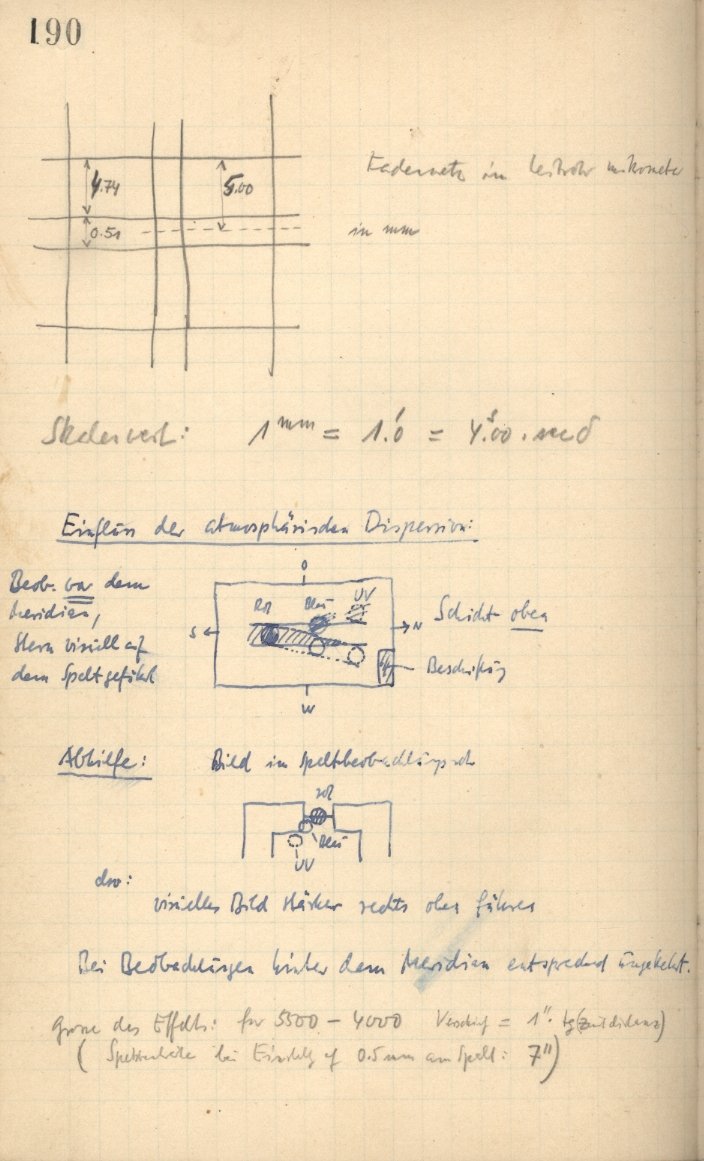 190
4.74
5.00
0.51
Fadennetz im Leitrohr mikrometer
in mm
Skalenwert: 1 mm = 1.′0 = 4.ˢ00 . sec δ
Einfluss der atmosphärischen Dispersion:
Beob. vor dem
Meridian,
Stern visuell auf
dem Spalt geführt
O
Rot Blau UV
S N
W
Schicht oben
Beschriftung
Abhilfe: Bild im Spaltbeobachtungsrohr
rot
Blau
UV
dso:
visuelles Bild stärker rechts oben führen
Bei Beobachtungen hinter dem Meridian entsprechend umgekehrt.
Grösse des Effekts: für 5500 – 4000 Verschieb = 1″ . tg (Zenitdistanz)
( Spaltbreite bei Einstellg auf 0.5 mm am Spalt: 7″)